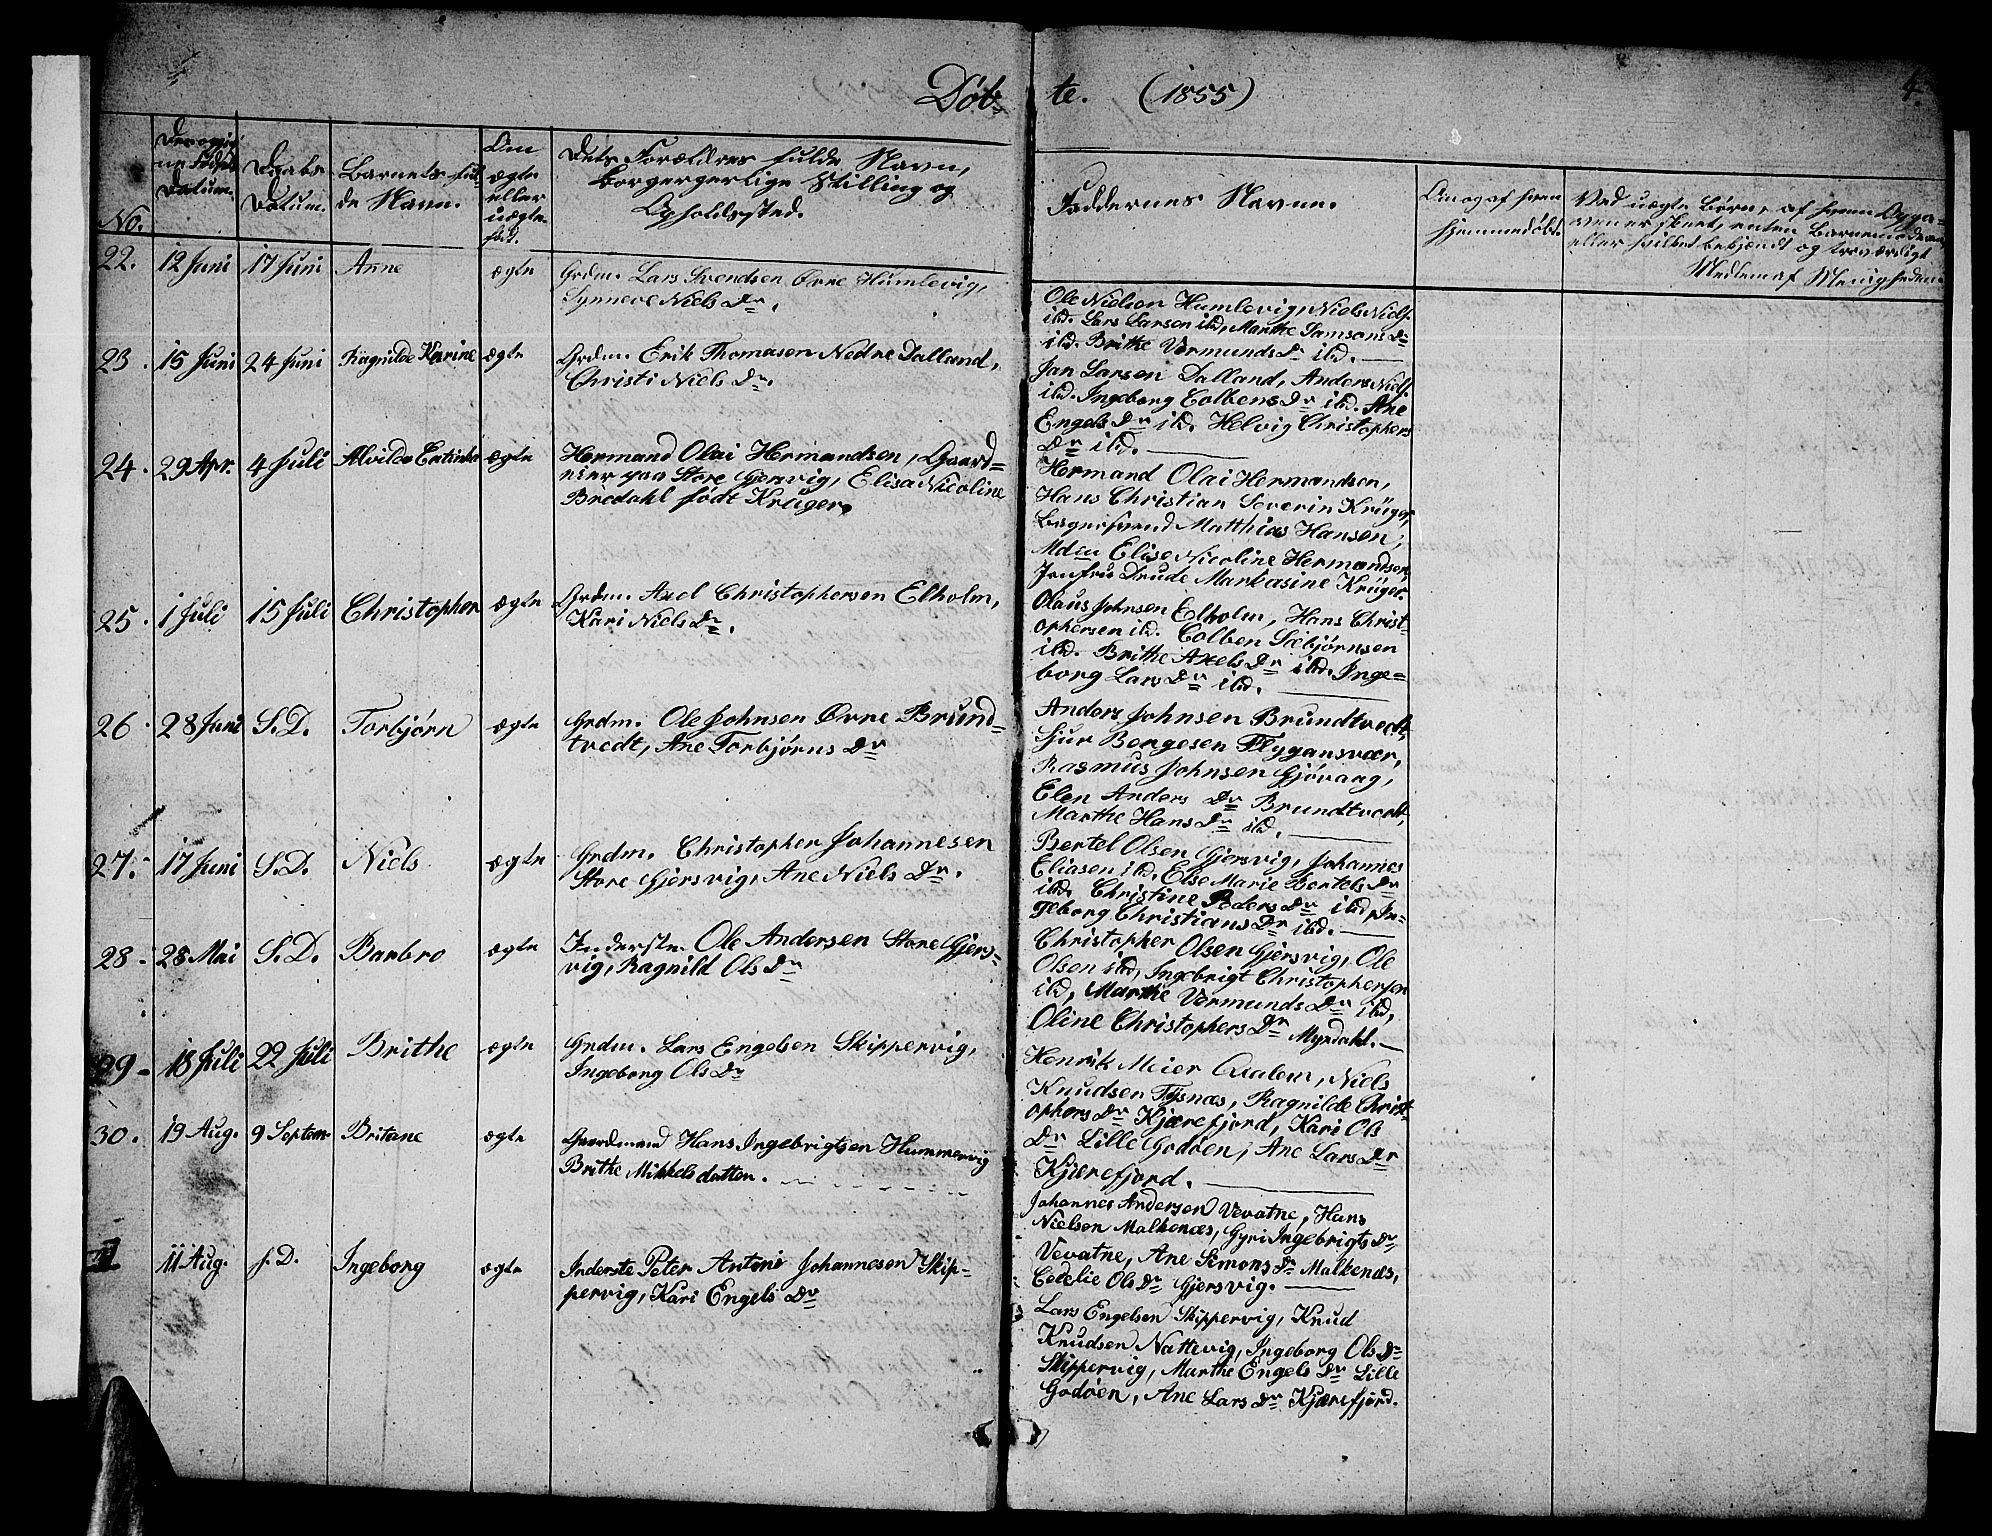 Døb- te. (1855) 4.
No.
Datum.
Daabs
Datum.
Barnets ful-
de Navn.
Om
ægte
eller
uægte
fød.
Dets Forældres fulde Navn,
borgergerlige Stilling og
Opholdssted.
Faddernes Navne.
Om og af hvem
hjemmedøbt.
Ved uægte Børn, af hvem Opga-
ven er skeet, enten Barnemoderen
eller hvilket bekjendt og troværdigt
Medlem af Menigheden.
22. 12 Juni 17 Juni Anne ægte Grdm. Lars Svendsen Øvre Humlevig,
Synneve Niels Dr.
Ole Nielsen Humlevig, Niels Niels.
ibd. Lars Larsen ibd, Marthe Samsons Dr
ibd. Brithe Vermunds Dr ibd.
23. 15 Juni 24 Juni Ragnilde Karine ægte Grdm. Erik Thomasen Nedre Dalland,
Christi Niels Dr.
Jan Larsen Dalland, Anders Niels.
ibd. Ingeborg Colbens Dr ibd. Ane
Engels Dr ibd. Helvig Christophers
Dr ibd.
24. 29 Apr. 4 Juli Alvilde Catinka ægte Hermand Olai Hermandsen, Gaard-
nier paa Store Gjersvig, Elisa Nicoline
Bredahl født Krüger.
Hermand Olai Hermandsen,
Hans Christian Severin Krüger,
Matthias Hansen,
Mdm Elise Nicoline Hermandsen,
Jomfru Drude Markasine Krüger.
25. 1 Juli 15 Juli Christopher ægte Grdm. Axel Christophersen Elholm,
Kari Niels Dr.
Olaus Johnsen Elholm, Hans Christ-
ophersen ibd. Colben Sæbjørnsen
ibd. Brithe Axels Dr ibd. Inge-
borg Lars Dr ibd.
26. 28 Juni S.D. Torbjørn ægte Grdm. Ole Johnsen Øvre Brund-
tvedt, Ane Torbjørns Dr
Anders Johnsen Brundtvedt,
Sjur Bengesen Flygansvær,
Rasmus Johnsen Gjøvaag,
Elen Anders Dr Brundtvedt,
Marthe Hans Dr ibd.
27. 17 Juni S.D. Niels ægte Grdm. Christopher Johannesen
Store Gjersvig, Ane Niels Dr.
Bertel Olsen Gjersvig, Johannes
Eliasen ibd. Else Marie Bertels Dr
ibd. Christine Peders Dr ibd, In-
geborg Christians Dr ibd.
28. 28 Mai S.D. Barbro ægte Inderste. Ole Andersen Store Gjers-
vig, Ragnild Ols Dr
Christopher Olsen Gjersvig, Ole
Olsen ibd, Ingebrigt Christophersen
ibd, Marthe Vermunds Dr ibd,
Oline Christophers Dr Myrdahl.
29. 18 Juli 22 Juli Brithe ægte Grdm. Lars Engelsen Skippervig,
Ingeborg Ols Dr
Henrik Meier Qvalem, Niels
Knudsen Tysnæs, Ragnilde Christ-
ophers Dr Kjærefjord, Kari Ols
Dr Lille Godøen, Ane Lars Dr
Kjærefjord.
30. 19 Aug. 9 Septem. Britane ægte Gaardmand Hans Ingebrigtsen Hummervig
Brithe Mikkelsdatter.
Johannes Andersen Vevatne, Hans
Nielsen Malkenæs, Gyri Ingebrigts Dr
Vevatne, Ane Simons Dr Malkenæs,
Cedelie Ols Dr Gjersvig.
1 11 Aug. S.D. Ingeborg ægte Inderste Peter Antoni Johannesen Skip-
pervig, Kari Engels Dr
Lars Engelsen Skippervig, Knud
Knudsen Nattevig, Ingeborg Ols Dr
Skippervig, Marthe Engels Dr Lille
Godøen, Ane Lars Dr Kjærefjord.